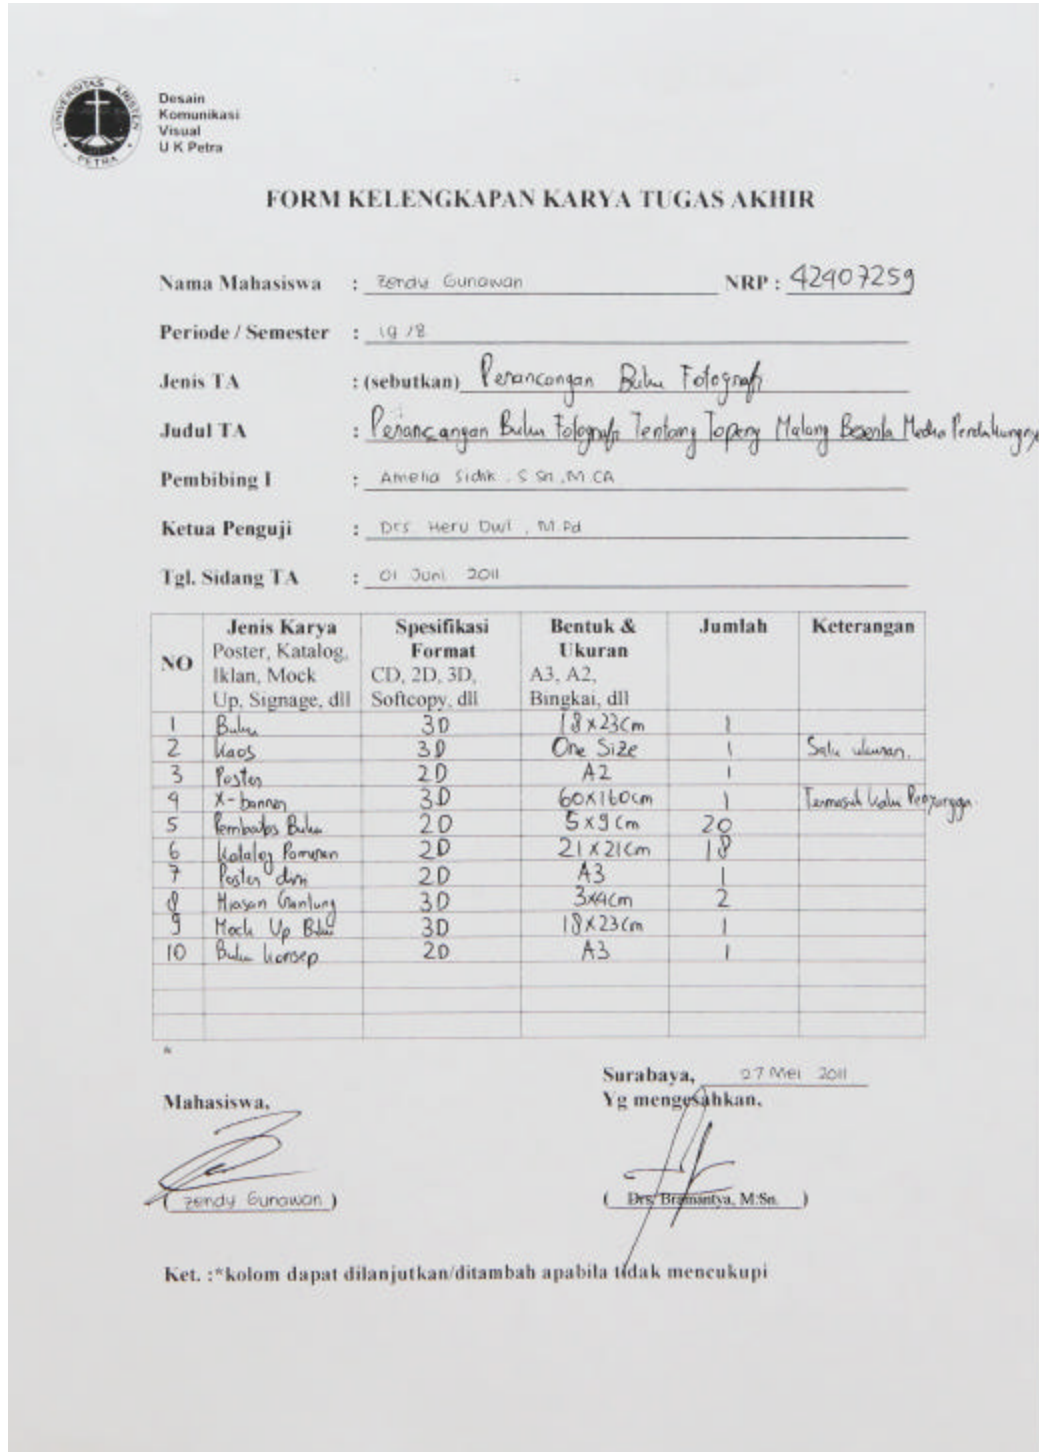 UNIVERSITAS KRISTEN
PETRA
Desain
Komunikasi
Visual
U K Petra
FORM KELENGKAPAN KARYA TUGAS AKHIR
Nama Mahasiswa : Zendy Gunawan NRP : 42407259
Periode / Semester : 19 / 8
Jenis TA : (sebutkan) Perancangan Buku Fotografi
Judul TA : Perancangan Buku Fotografi Tentang Topeng Malang Beserta Media Pendukungnya
Pembibing I : Amelia Sidik, S.Sn, M.CA
Ketua Penguji : Drs Heru Dwi, M.Pd
Tgl. Sidang TA : 01 Juni 2011
NO Jenis Karya Poster, Katalog, Iklan, Mock Up, Signage, dll Spesifikasi Format CD, 2D, 3D, Softcopy, dll Bentuk & Ukuran A3, A2, Bingkai, dll Jumlah Keterangan
1 Buku 3D 18x23cm 1
2 Kaos 3D One Size 1 Satu ukuran.
3 Poster 2D A2 1
4 X-banner 3D 60x160cm 1 Termasuk kaki Penyangga.
5 Pembatas Buku 2D 5x9cm 20
6 Katalog Pameran 2D 21x21cm 18
7 Poster 2D A3 1
8 Hiasan Gantung 3D 3x4cm 2
9 Mock Up Buku 3D 18x23cm 1
10 Buku konsep 2D A3 1
*
Surabaya, 27 Mei 2011
Mahasiswa, Yg mengesahkan,
( Zendy Gunawan ) ( Drs. Bramantya, M.Sn. )
Ket. :*kolom dapat dilanjutkan/ditambah apabila tidak mencukupi